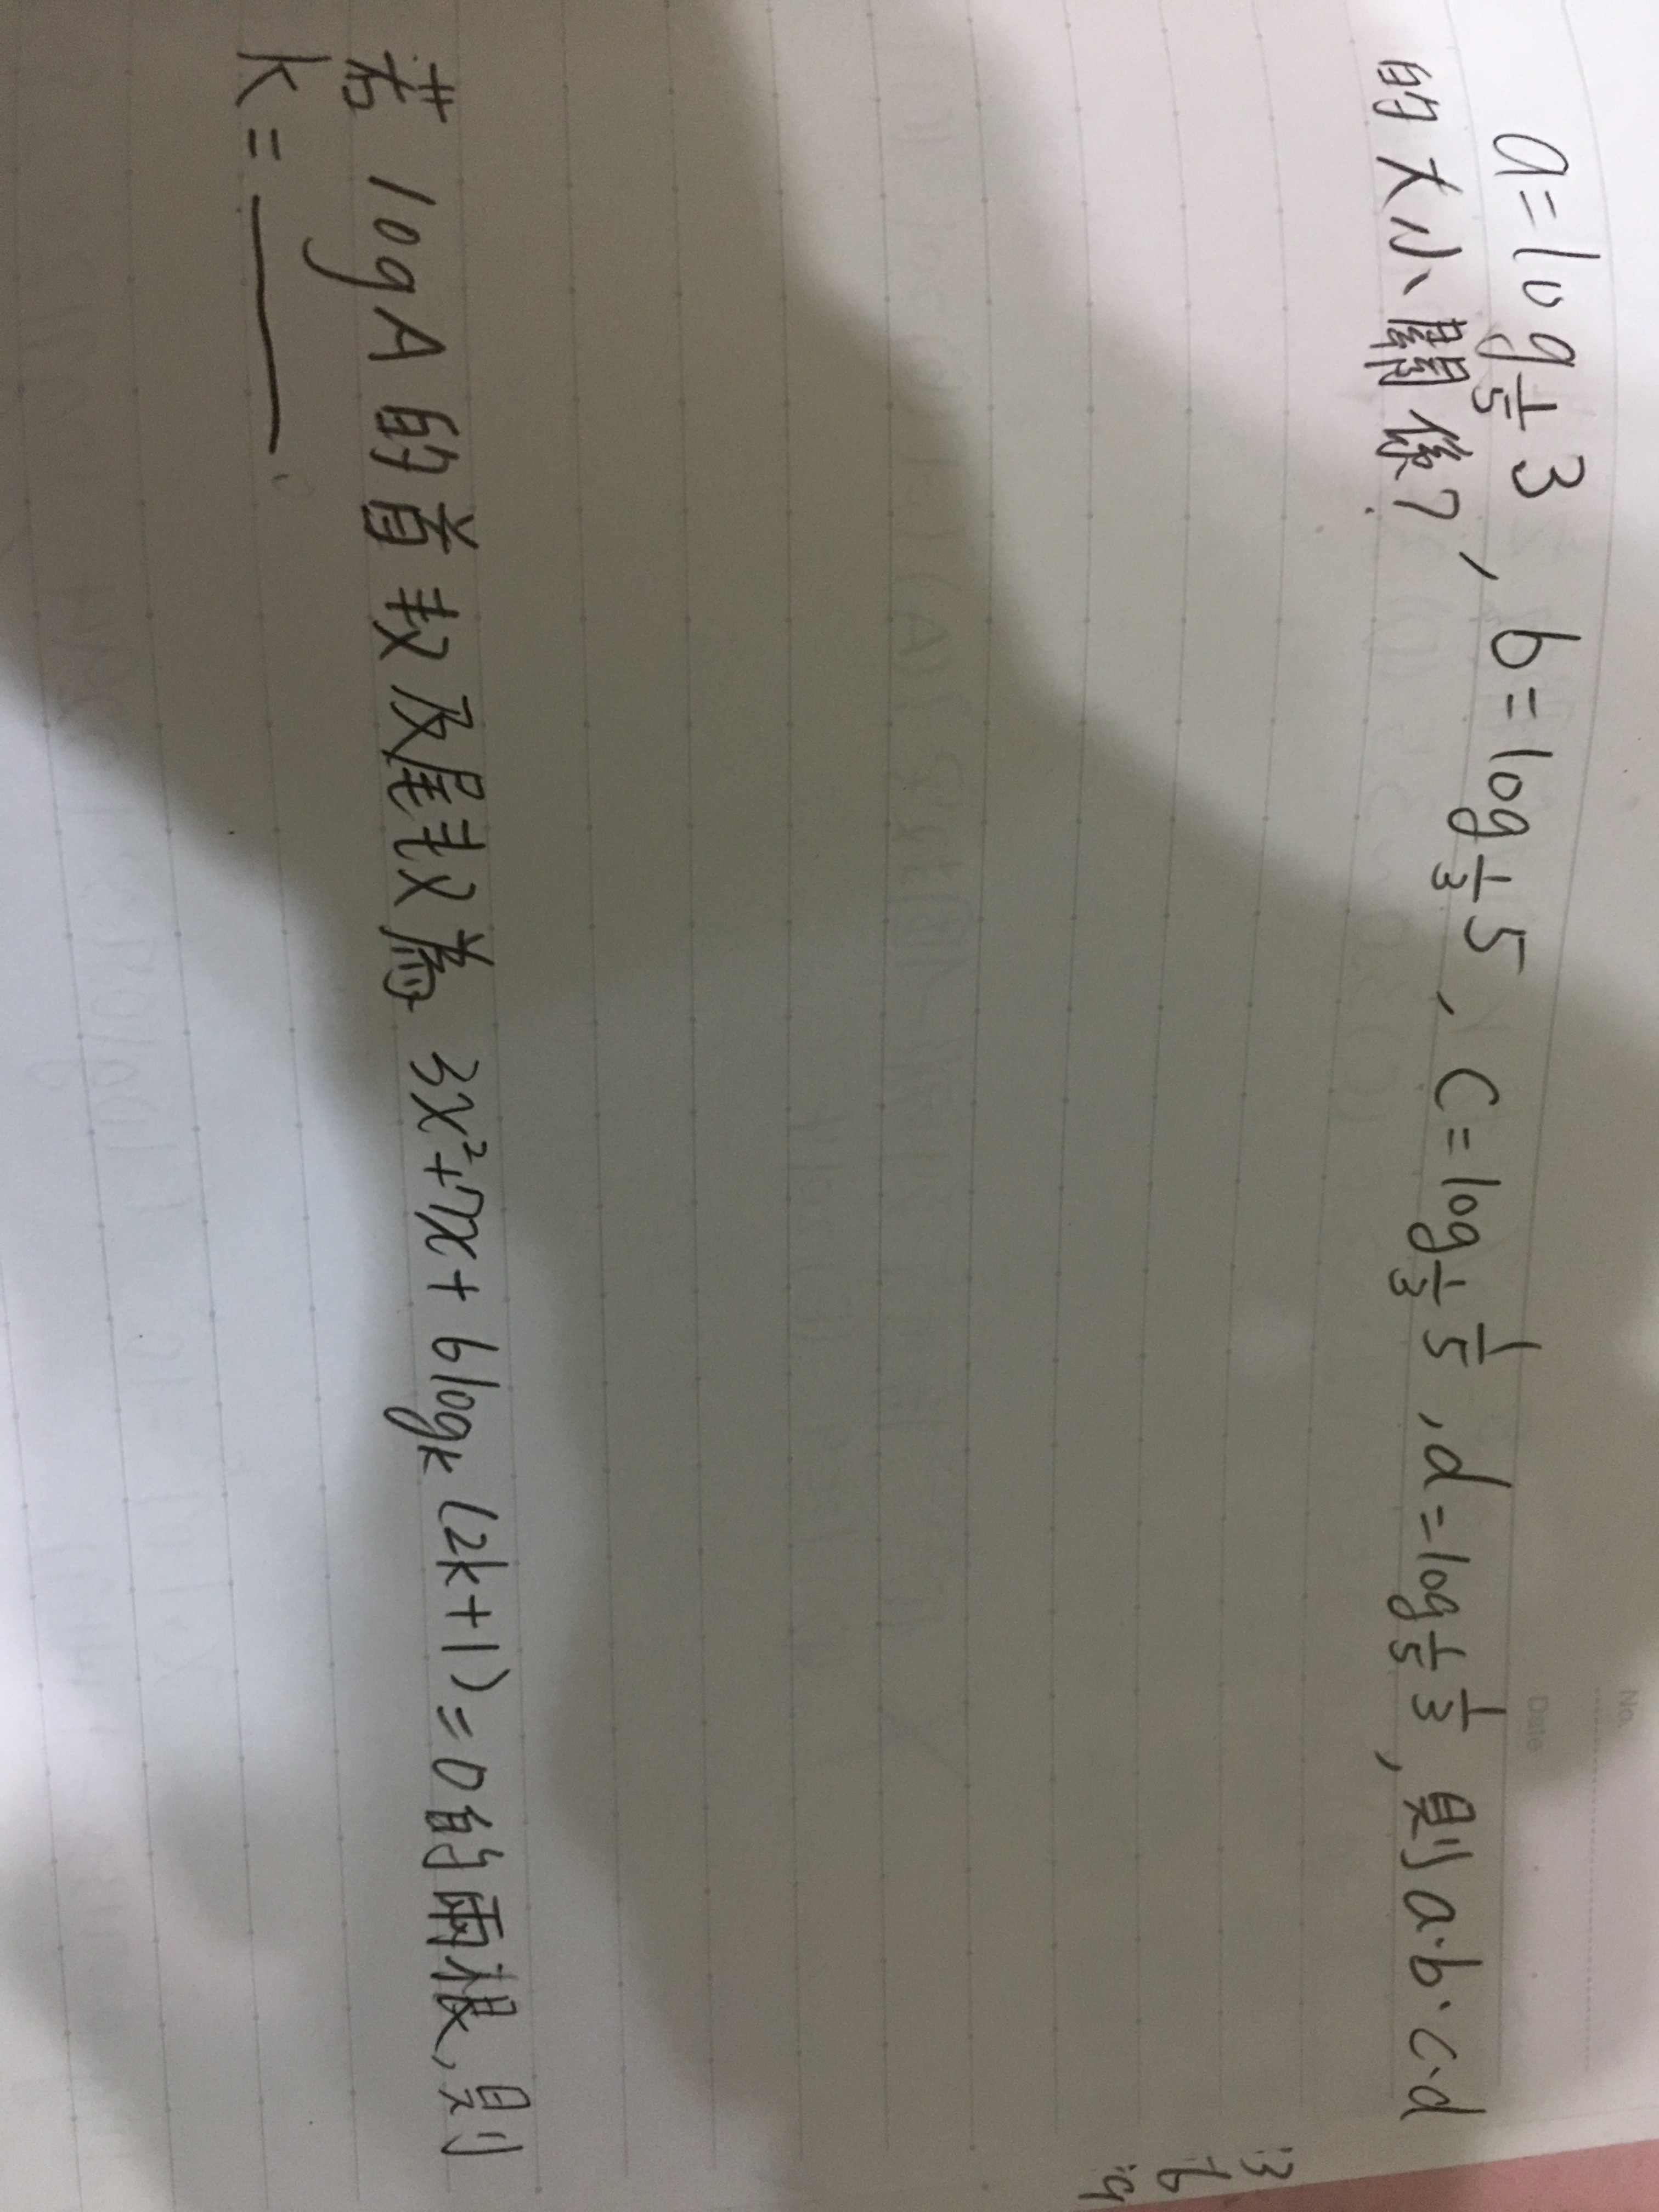 a=log_{1/5} 3, b=log_{1/3} 5、c=log_{1/3} 1/5, d=log_{1/5} 1/3, 則a.b.c.d
的大小關係?
若 log A 的首数及尾数為 3x²+7x+6log_k (2k+1)=0的兩根,則
k=______.
No.
Date